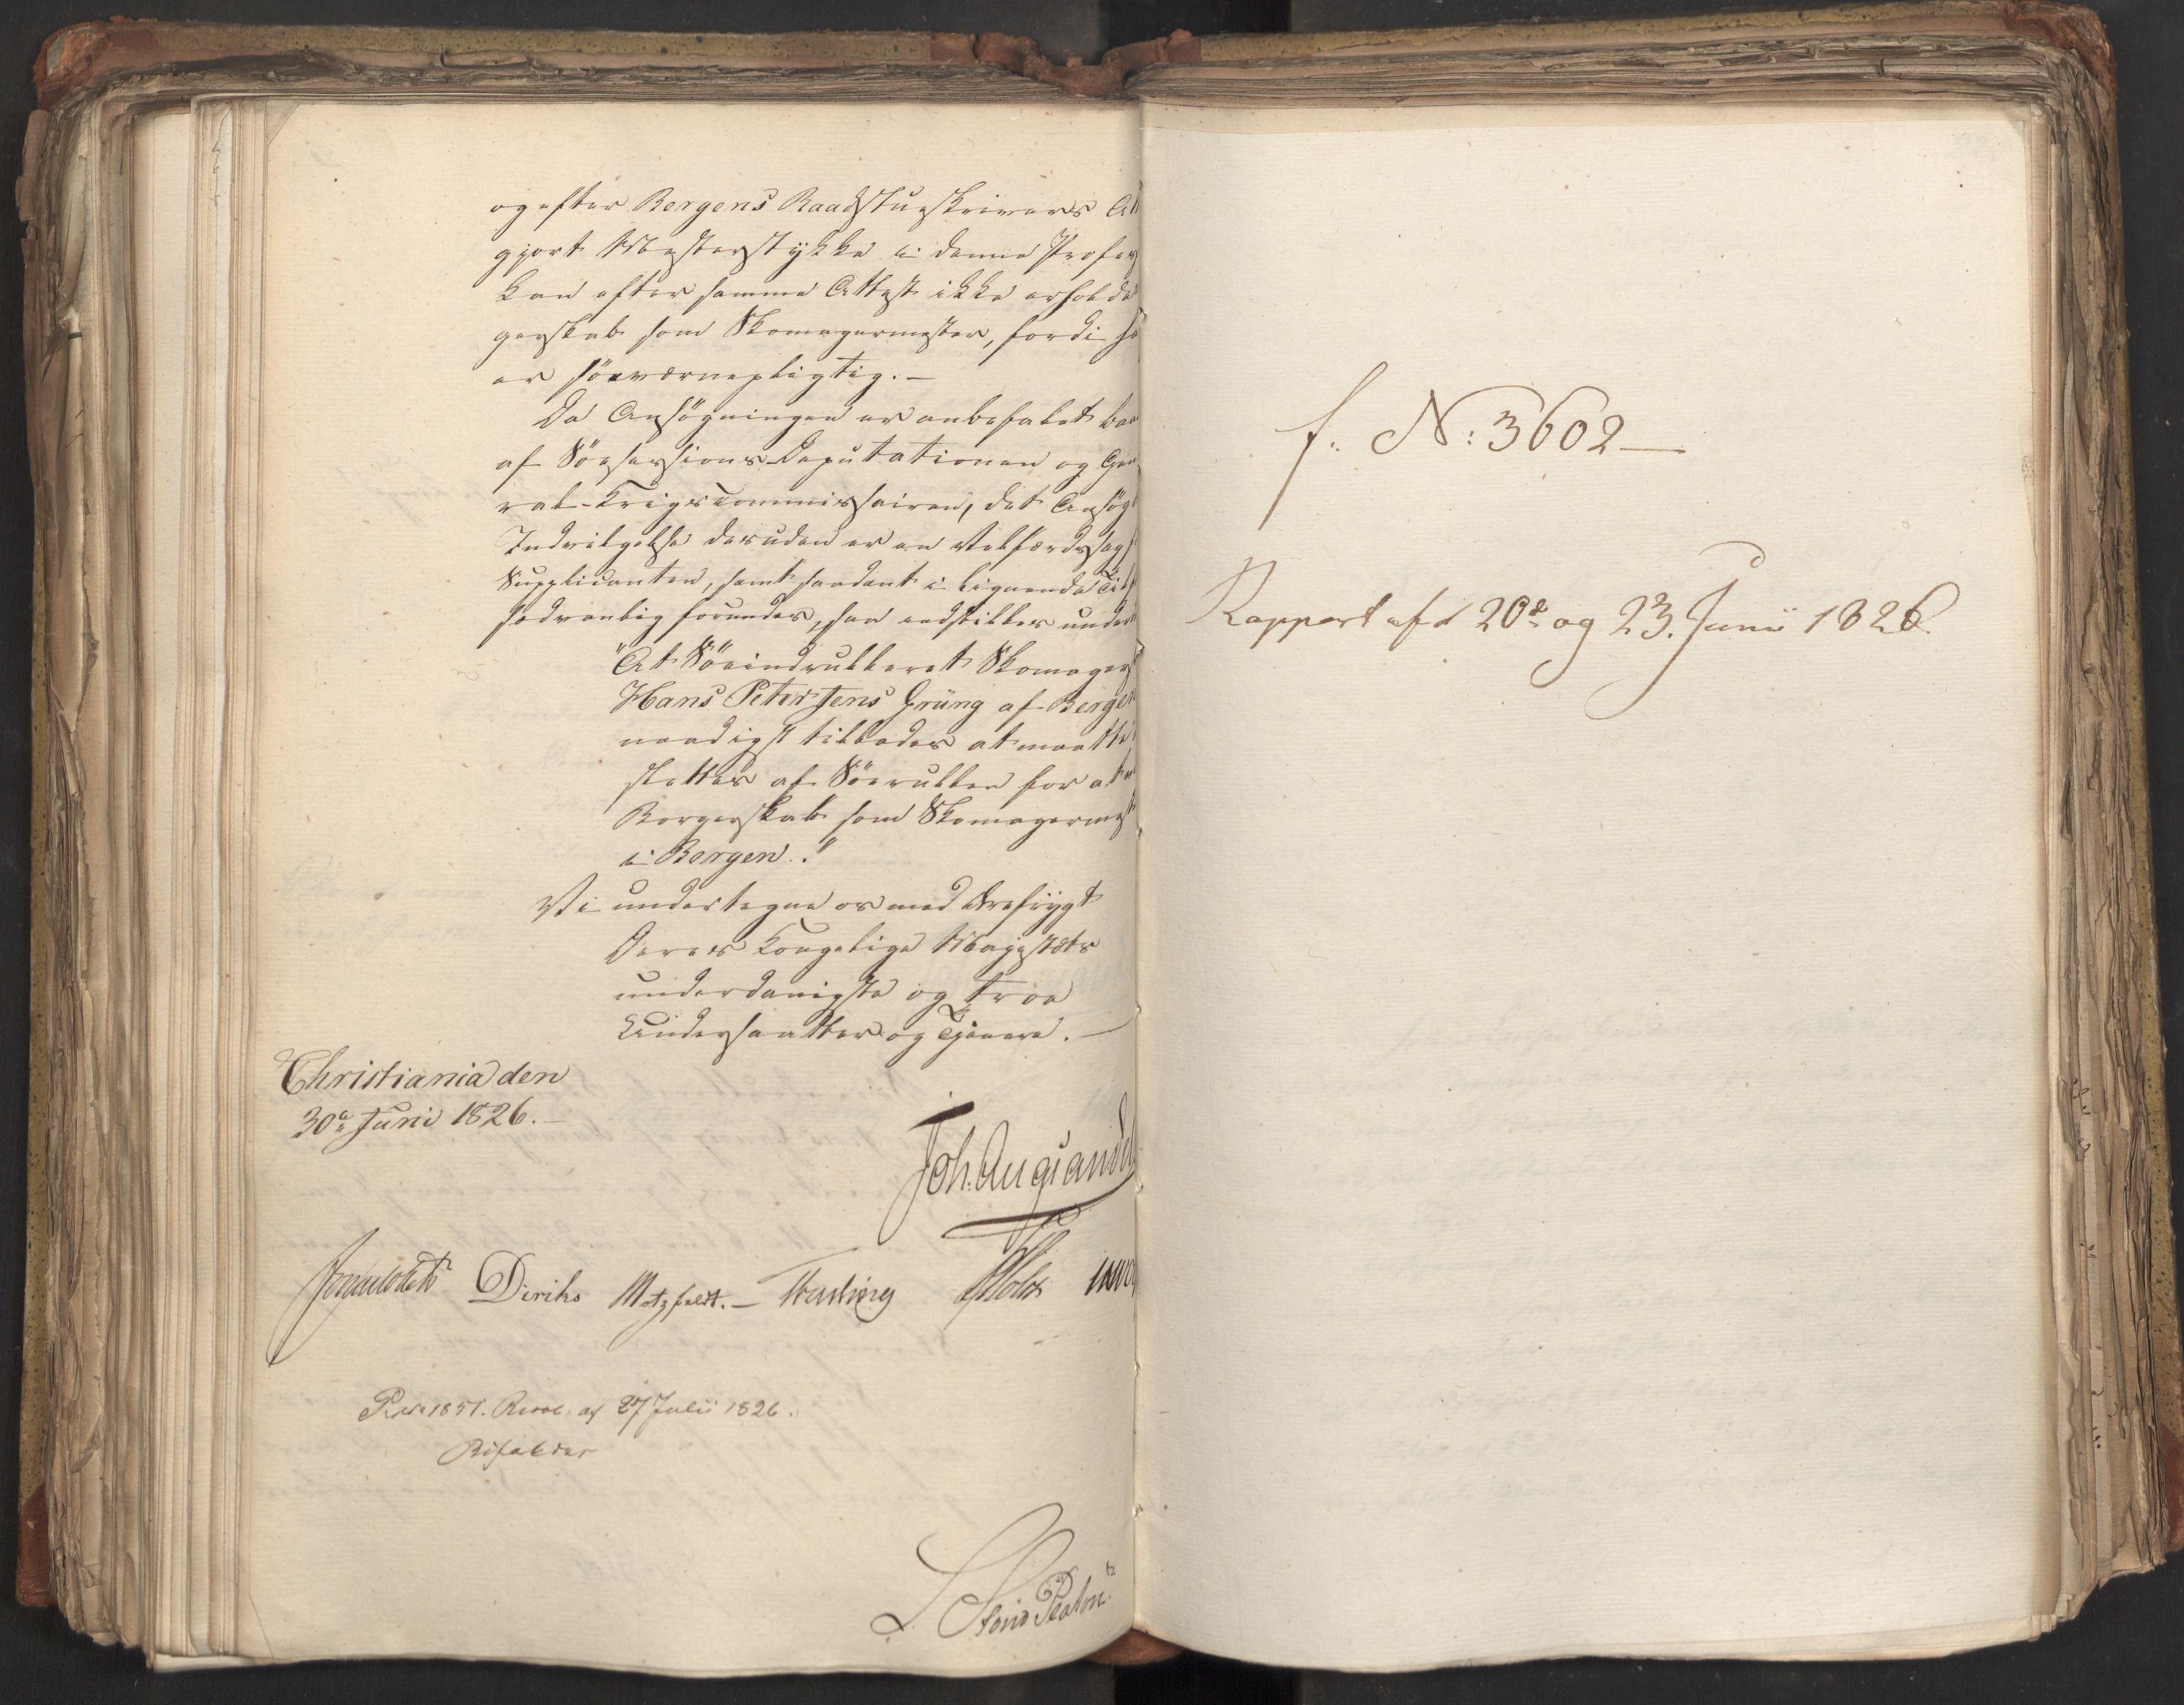 og efter Bergens Raadstueskrivers Att
gjort Mesterstykke i denne Profes
kan efter samme Attest ikke erholde
gerskab som Skomagermester, fordi ha
er söeværnepligtig. —
Da Ansögningen er anbefalet baa
af Söesessions-Deputationen og Gene
ral-Krigscommissairen, det Ansögt
Indvilgelse desuden er en Velfærdssag f
Supplicanten, samt saadant i lignende Til
sædvanlig forundes, saa indstilles under
"At Söeindrulleret Skomagers
Hans Peter Jens Grüng af Bergen
naadigst tillades at maatte
slettes af Söerullen for at er
Borgerskab som Skomagermest
i Bergen."
Vi undertegne os med Ærefrygt
Deres Kongelige Majestæts
underdanigste og troe
Undersaatter og Tjenere. —
Christiania den
30te Juni 1826. —
Joh. Aug Sandel
Diriks Motzfeldt. — Treschow Holst
1851. Resol. af 27 Julii 1826.
Bifaldes
f. N: 3602 —
Rapport af d 20de og 23. Junii 1826.